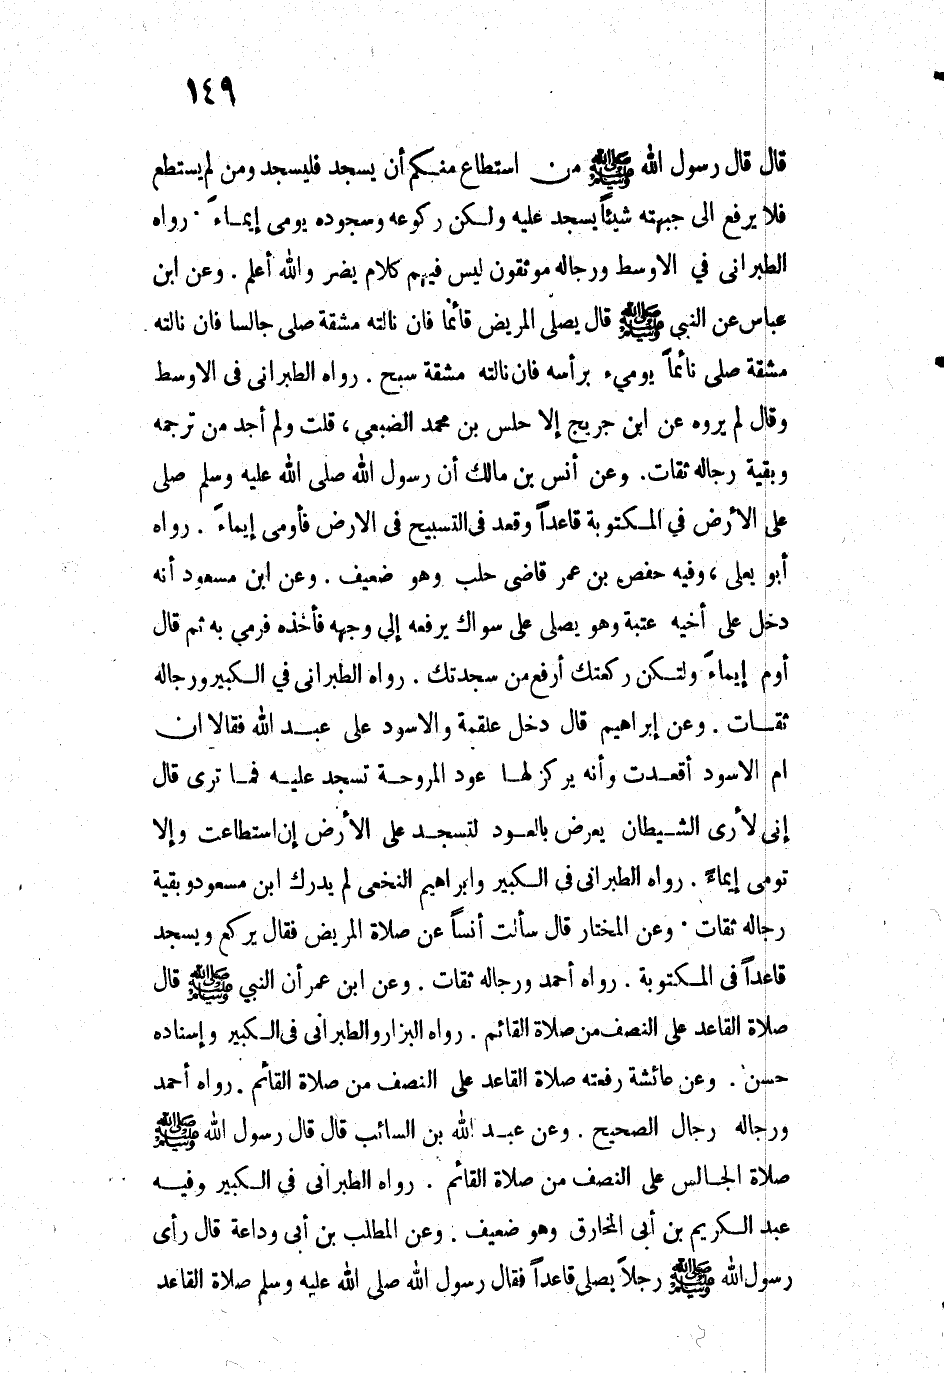 ١٤٩
قال قال رسول الله ﷺ من استطاع منكم أن يسجد فليسجد ومن لم يستطع
فلا يرفع الى جبهته شيئاً يسجد عليه ولكن ركوعه وسجوده يومى إيماءً . رواه
الطبرانى في الاوسط ورجاله موثقون ليس فيهم كلام يضر والله أعلم . وعن ابن
عباس عن النبي ﷺ قال يصلى المريض قائما فان نالته مشقة صلى جالسا فان نالته
مشقة صلى نائماً يوميء برأسه فان نالته مشقة سبح . رواه الطبرانى فى الاوسط
وقال لم يروه عن ابن جريج إلا حلس بن محمد الضبعي ، قلت ولم أجد من ترجمه
وبقية رجاله ثقات. وعن أنس بن مالك أن رسول الله صلى الله عليه وسلم صلى
على الأرض في المكتوبة قاعداً وقعد فى التسبيح فى الارض فأومى إيماءً . رواه
أبو يعلى ، وفيه حفص بن عمر قاضى حلب وهو ضعيف . وعن ابن مسعود أنه
دخل على أخيه عتبة وهو يصلى على سواك يرفعه إلى وجهه فأخذه فرمي به ثم قال
أوم إيماءً ولتكن ركعتك أرفع من سجدتك . رواه الطبرانى في الكبير ورجاله
ثقات . وعن إبراهيم قال دخل علقمة والاسود على عبد الله فقالا ان
ام الاسود أقعدت وأنه يركز لها عود المروحة تسجد عليه فما ترى قال
إنى لأرى الشيطان يعرض بالعود لتسجد على الأرض إن استطاعت وإلا
تومى إيماءً . رواه الطبرانى في الكبير وابراهيم النخعى لم يدرك ابن مسعود وبقية
رجاله ثقات . وعن المختار قال سألت أنساً عن صلاة المريض فقال يركع ويسجد
قاعداً فى المكتوبة . رواه أحمد ورجاله ثقات . وعن ابن عمر أن النبي ﷺ قال
صلاة القاعد على النصف من صلاة القائم . رواه البزار والطبرانى فى الكبير وإسناده
حسن . وعن عائشة رفعته صلاة القاعد على النصف من صلاة القائم . رواه أحمد
ورجاله رجال الصحيح . وعن عبد الله بن السائب قال قال رسول الله ﷺ
صلاة الجالس على النصف من صلاة القائم . رواه الطبرانى في الكبير وفيه
عبد الكريم بن أبى المخارق وهو ضعيف . وعن المطلب بن أبى وداعة قال رأى
رسول الله ﷺ رجلاً يصلى قاعداً فقال رسول الله صلى الله عليه وسلم صلاة القاعد